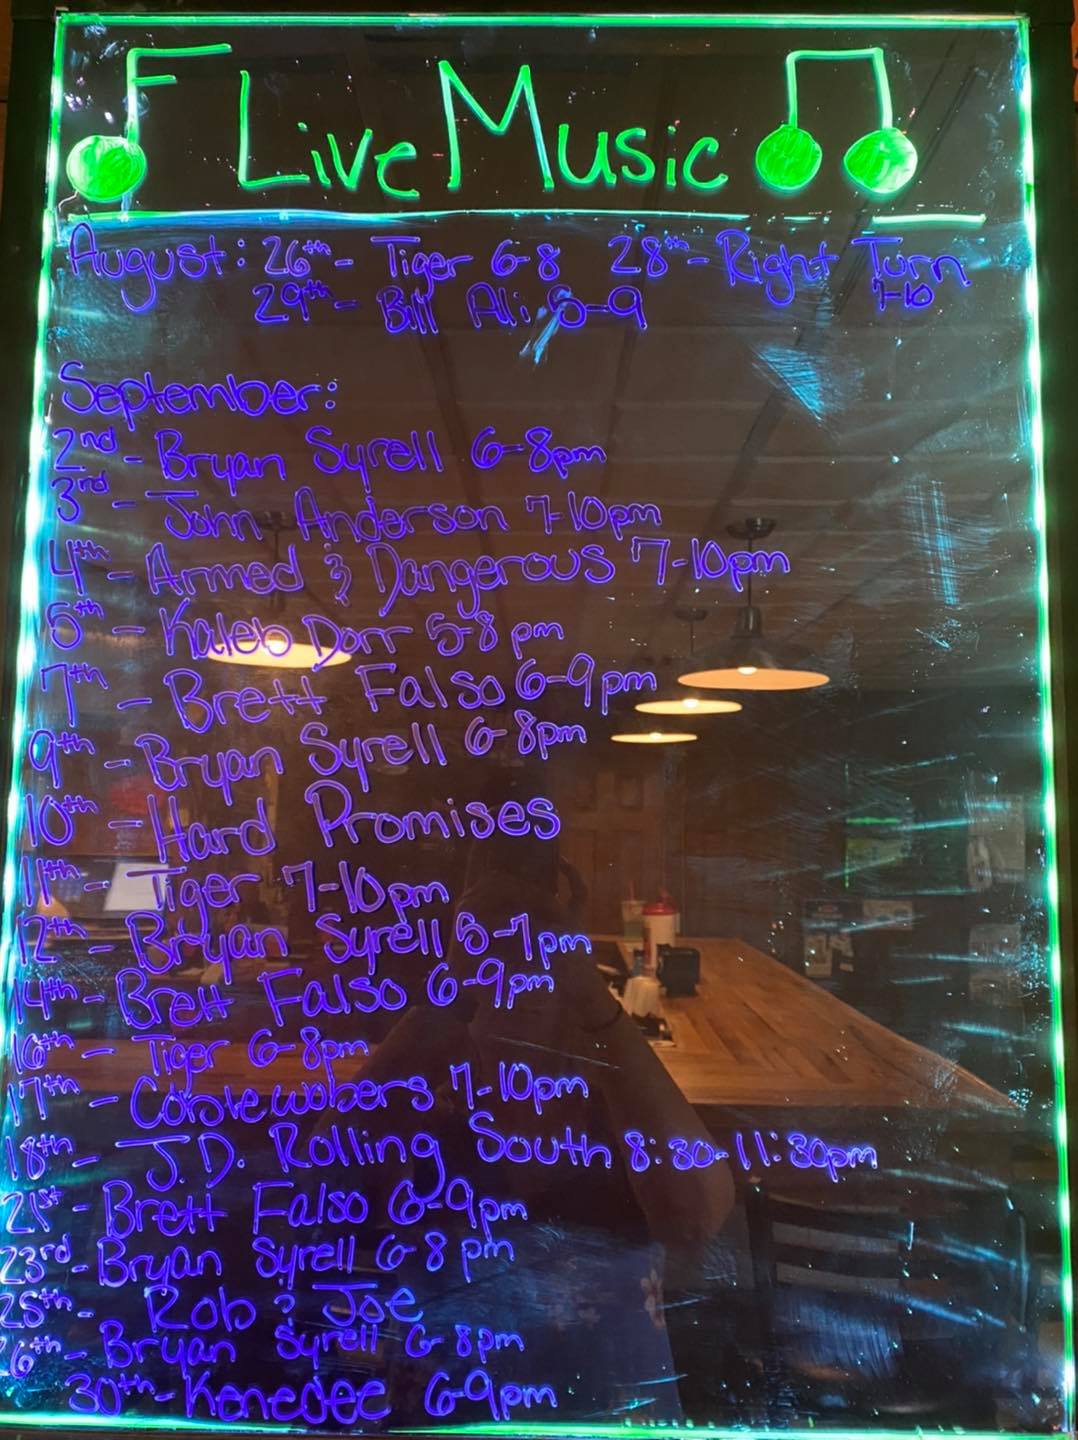 Live Music
August: 26th - Tiger 6-8 28th - Right Turn 7-10
29th - Bill Ali 6-9
September:
2nd - Bryan Syrell 6-8pm
3rd - John Anderson 7-10pm
4th - Armed & Dangerous 7-10pm
5th - Kaleb Dorr 5-8pm
7th - Brett Falso 6-9pm
9th - Bryan Syrell 6-8pm
10th - Hard Promises
11th - Tiger 7-10pm
12th - Bryan Syrell 5-7pm
14th - Brett Falso 6-9pm
16th - Tiger 6-8pm
17th - 7-10pm
18th - J.D. Rolling South 8:30-11:30pm
21st - Brett Falso 6-9pm
23rd - Bryan Syrell 6-8pm
25th - Rob & Joe
6th - Bryan Syrell 6-8pm
30th - Kenedee 6-9pm